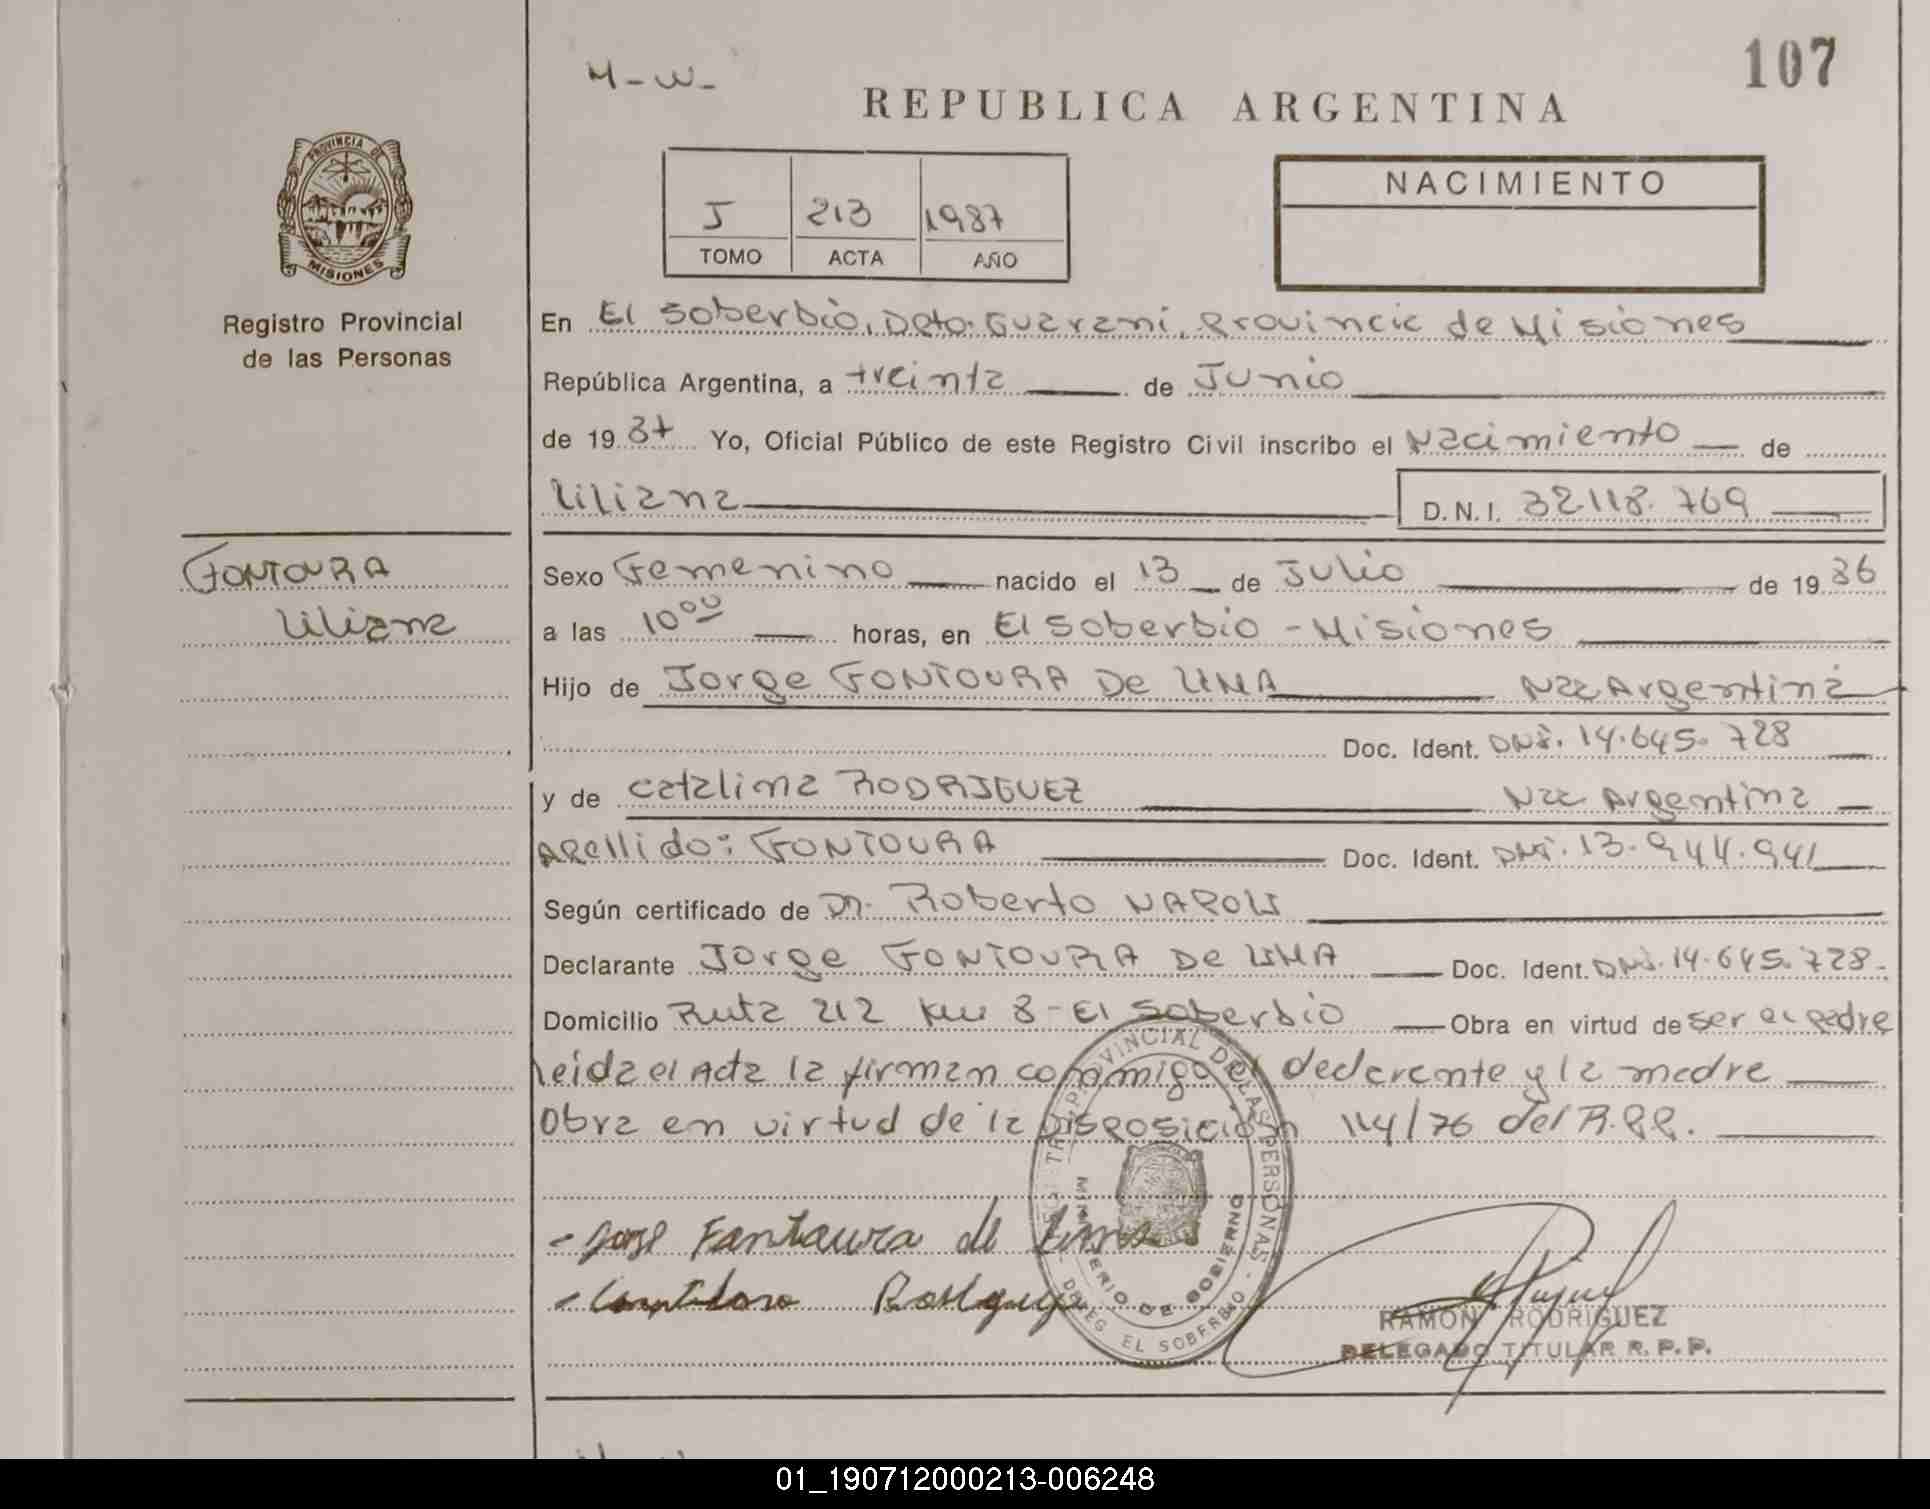 107
M-W-
REPUBLICA ARGENTINA
PROVINCIA DE
MISIONES
Registro Provincial
de las Personas
J 213 1987
TOMO ACTA AÑO
NACIMIENTO
En El Soberbio, Dpto. Guarani, Provincia de Misiones
República Argentina, a treinta de Junio
de 19 87 Yo, Oficial Público de este Registro Civil inscribo el Nacimiento de
Liliana D.N.I. 32.118.769
FONTOURA
Liliana
Sexo Femenino nacido el 13 de Julio de 19 86
a las 10 00 horas, en El Soberbio - Misiones
Hijo de Jorge FONTOURA De LIMA Nac Argentina
Doc. Ident. DNI. 14.645.728
y de Catalina RODRIGUEZ Nac Argentina
Apellido: FONTOURA Doc. Ident. DNI. 13.944.941
Según certificado de Dr. Roberto NAPOLI
Declarante Jorge FONTOURA De LIMA Doc. Ident. DNI. 14.645.728.
Domicilio Ruta 212 Km 8 - El Soberbio Obra en virtud de ser el padre
Leida el Acta la firman conmigo el declarante y la madre
Obra en virtud de la Disposición 114/76 del R.P.P.
- Jorge Fantaura de Lima
REGISTRO PROVINCIAL DE LAS PERSONAS
MINISTERIO DE GOBIERNO
DELEG EL SOBERBIO
RAMON RODRIGUEZ
DELEGADO TITULAR R.P.P.
01_190712000213-006248